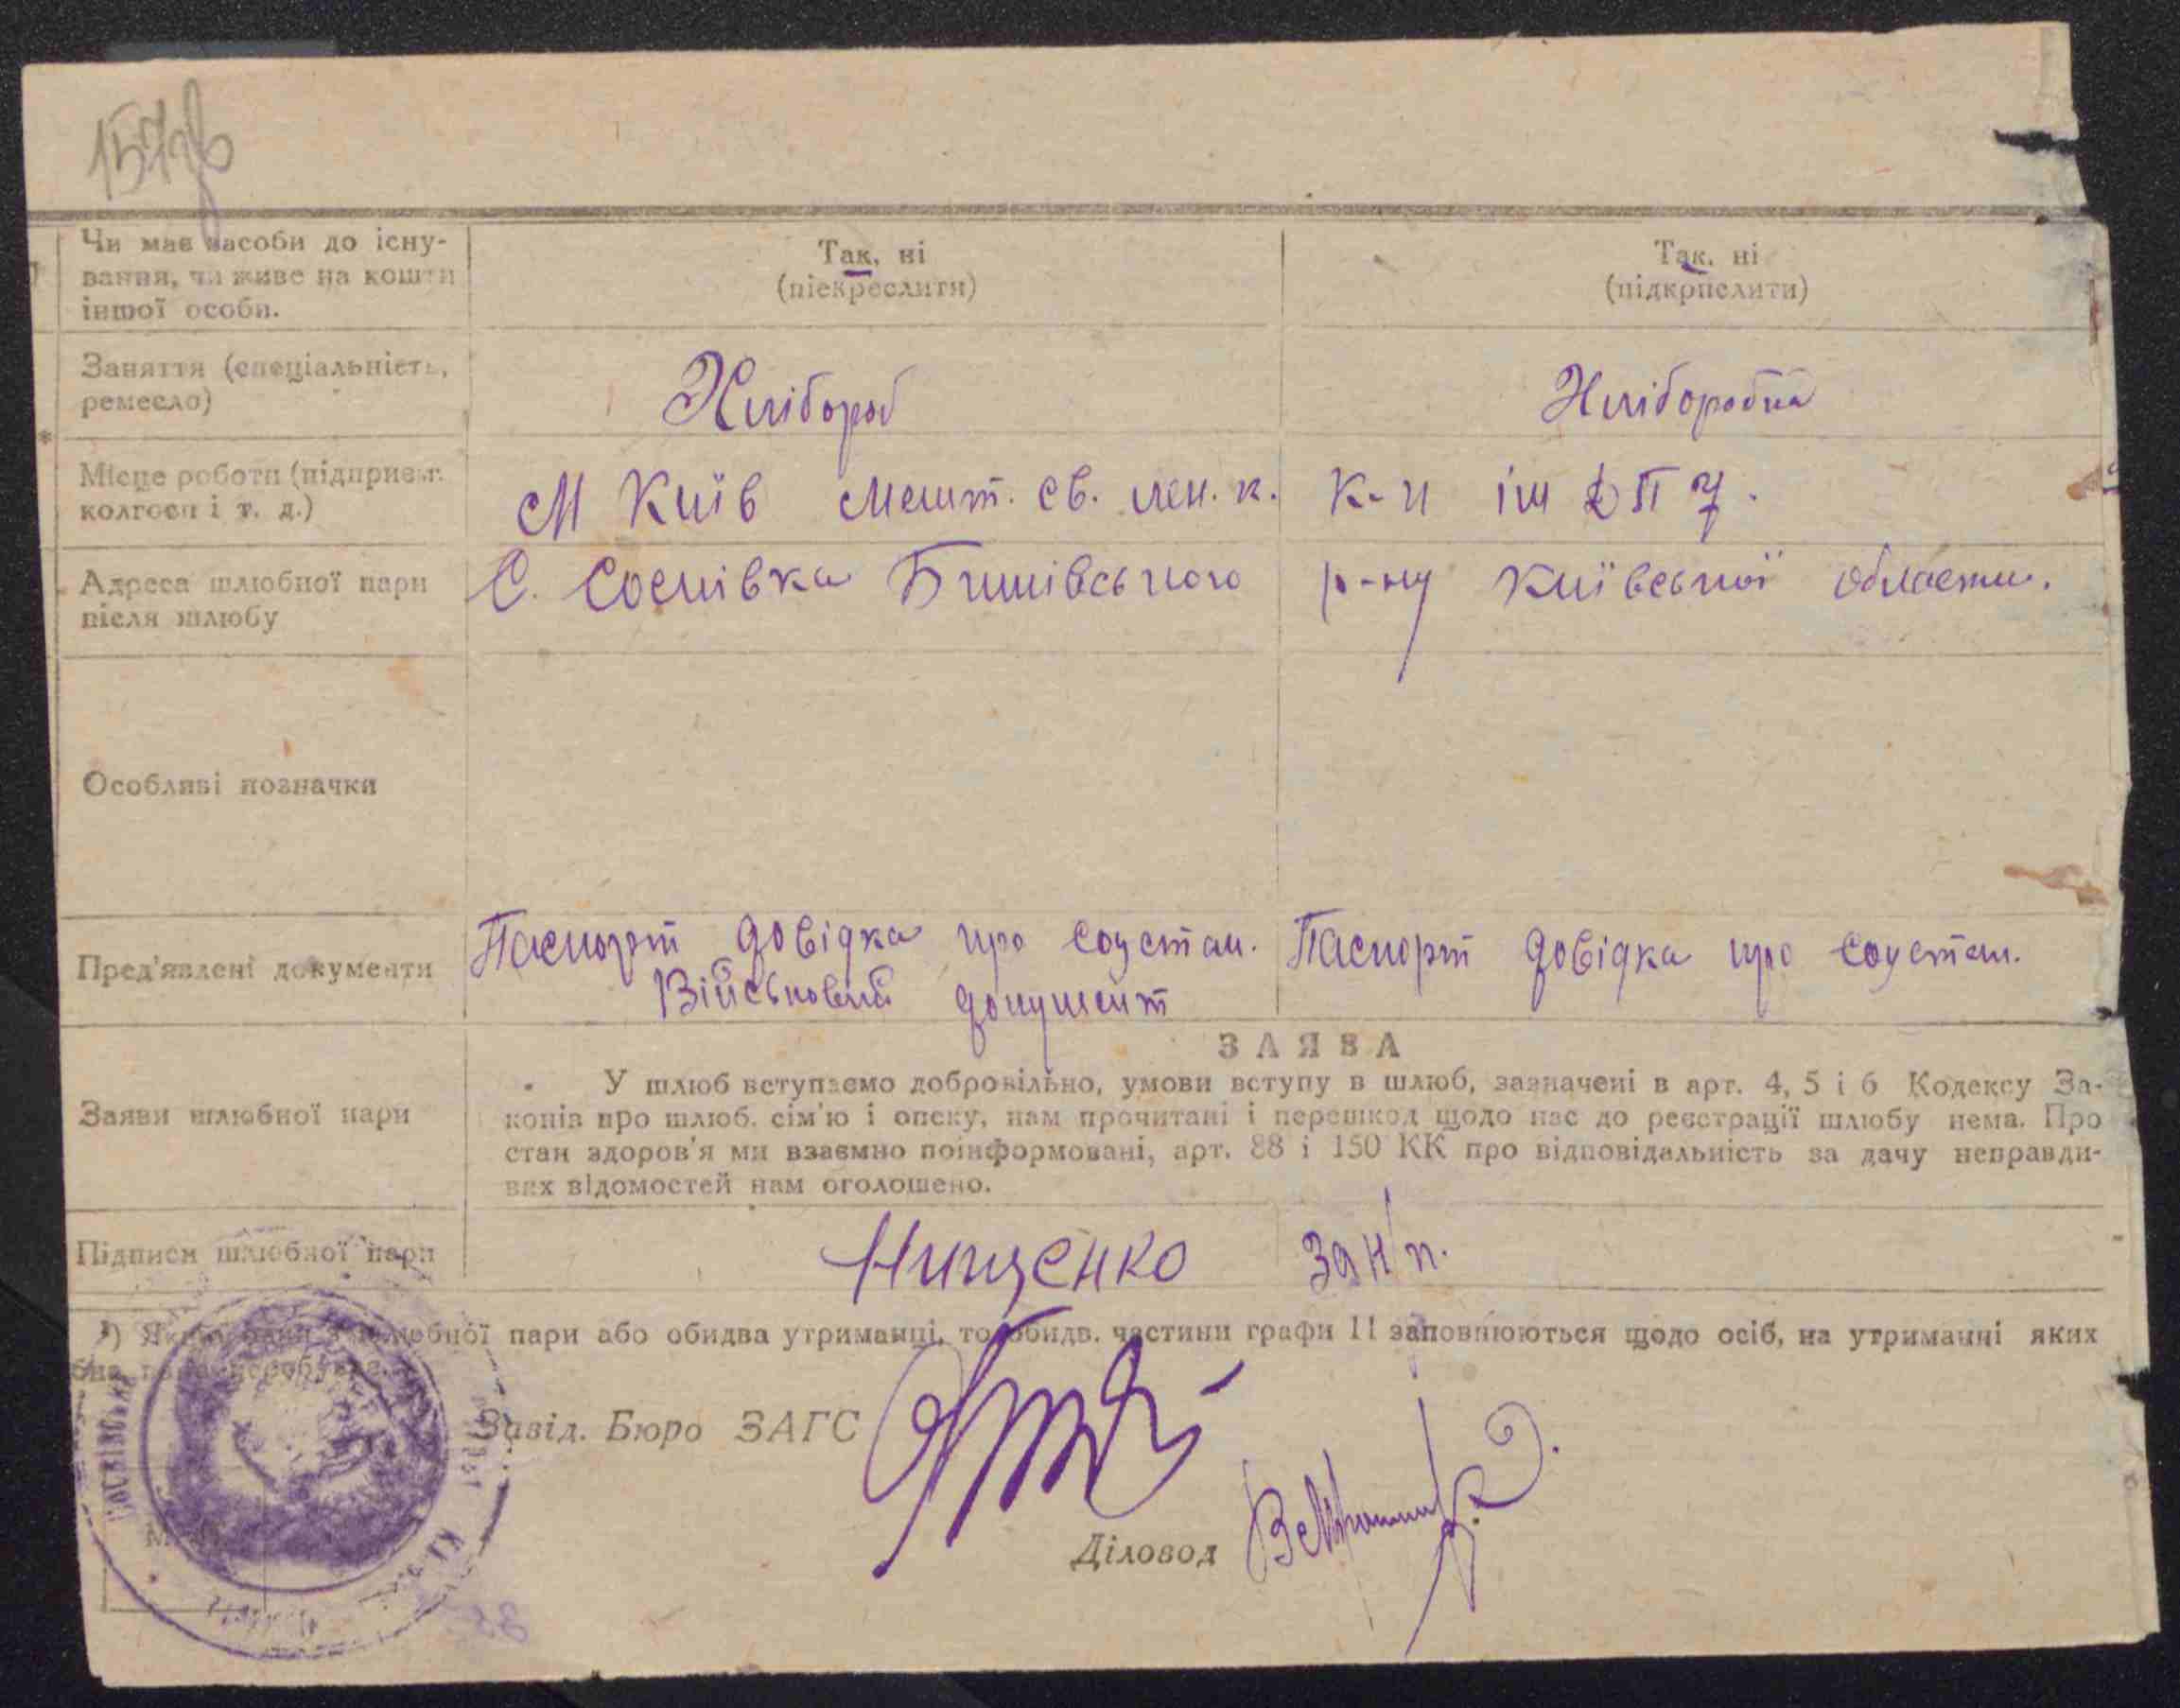 Чи має засоби до існу-
вання, чи живе на кошти
іншої особи.
Так, ні
(піекреслити)
Так, ні
(підкрпслити)
Заняття (спеціальність,
ремесло)
Хлібороб
Хлібробка
Місце роботи (підприєм.
колгосп і т. д.)
М Київ мешт. св. лен. к.
К-п ім ДПУ.
Адреса шлюбної пари
після шлюбу
С. Соснівка Бишівського р-ну Київської области.
Особливі позначки
Пред'явлені документи
Паспорт довідка про соцстан.
Військовий документ
Паспорт довідка про соцстан.
ЗАЯВА
Заяви шлюбної пари
У шлюб вступаємо добровільно, умови вступу в шлюб, зазначені в арт. 4, 5 і 6 Кодексу За-
конів про шлюб, сім'ю і опеку, нам прочитані і перешкод щодо нас до реєстрації шлюбу нема. Про
стан здоров'я ми взаємно поінформовані, арт. 88 і 150 КК про відповідальність за дачу неправди-
вих відомостей нам оголошено.
Підписи шлюбної пари
Нищенко
За н/п.
пари або обидва утриманці, то обидв. частини графи 11 заповнюються щодо осіб, на утриманні яких
Завід. Бюро ЗАГС
Діловод